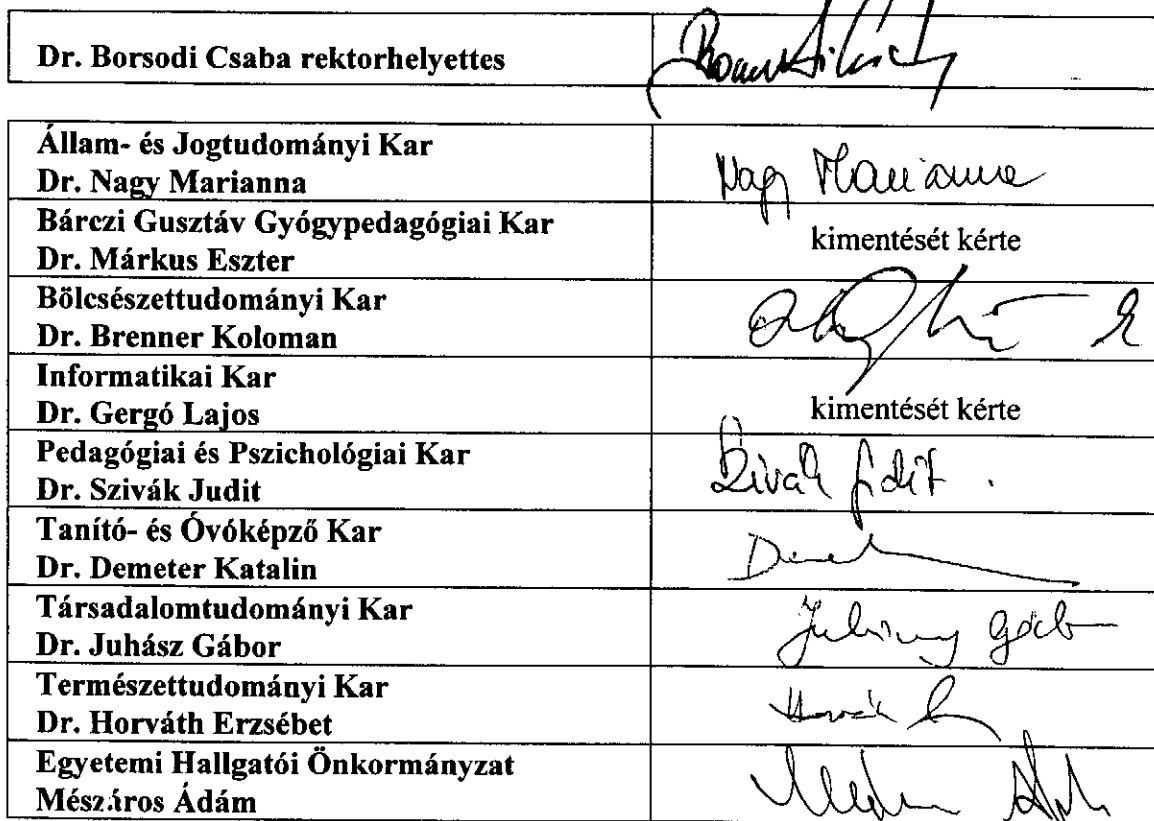 Dr. Borsodi Csaba rektorhelyettes
Állam- és Jogtudományi Kar
Dr. Nagy Marianna
Nagy Marianna
Bárczi Gusztáv Gyógypedagógiai Kar
Dr. Márkus Eszter
kimentését kérte
Bölcsészettudományi Kar
Dr. Brenner Koloman
Informatikai Kar
Dr. Gergó Lajos
kimentését kérte
Pedagógiai és Pszichológiai Kar
Dr. Szivák Judit
Szivák Judit
Tanító- és Óvóképző Kar
Dr. Demeter Katalin
Társadalomtudományi Kar
Dr. Juhász Gábor
Juhász Gábor
Természettudományi Kar
Dr. Horváth Erzsébet
Egyetemi Hallgatói Önkormányzat
Mészáros Ádám